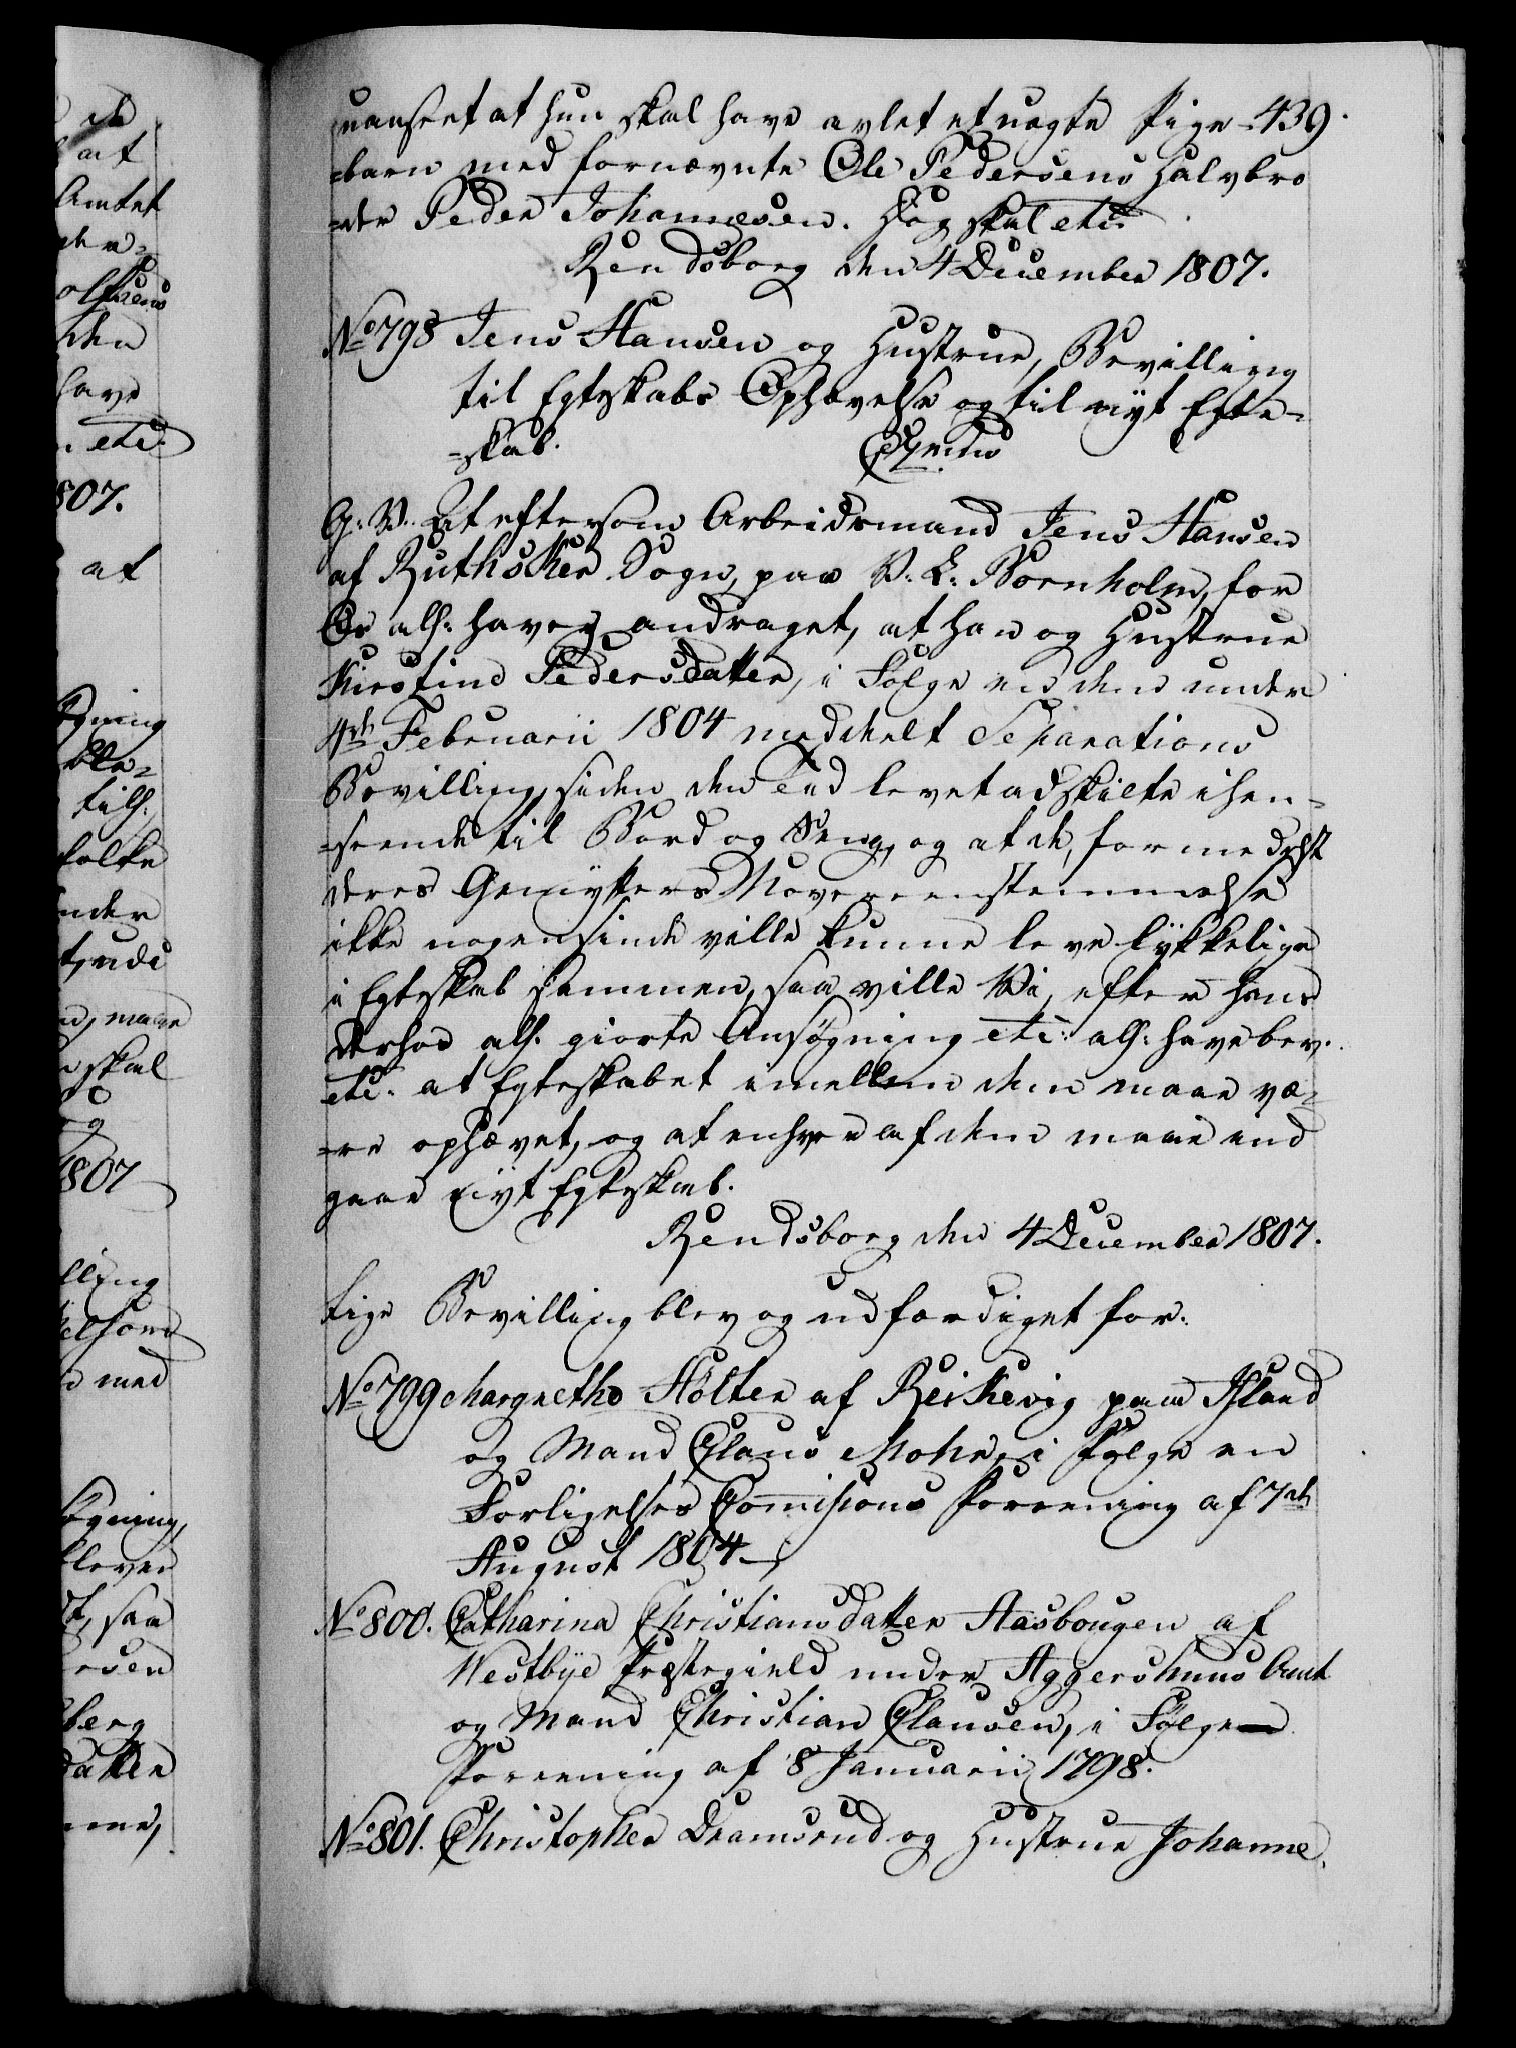 uanseet at hun skal have avlet et uægte Pige- 439.
-barn med fornævnte Ole Pedersens Halvbro
-der Peder Johannesen. Dog skal etc:
Rendsborg den 4 December 1807.
No 798 Jens Hansen og Hustrue, Bevilling
til Egteskabs Ophævelse og til nyt Egte-
-skab.
G: V: At eftersom Arbeidsmand Jens Hansen
af Ruthsker Sogn, paa V: L: Bornholm, for
Os all: haver andraget, at han og Hustrue
Kirstine Pedersdatter, i Følge en dem under
4de Februarii 1804 meddeelt Separations
Bevilling, siden den Tid levet adskilte i hen-
-seende til Bord og Seng, og at de, formedelst
deres Gemytters Uovereenstemmelse
ikke nogensinde ville kunne leve lykkelige
i Egteskab sammen, saa ville Vi, efter hans
derhos all. giorte Ansøgning etc: all: have bev.
etc: at Egteskabet imellem dem maae væ-
-re ophævet, og at enhver af dem maae ind
gaae nyt Egteskab.
Rendsborg den 4 December 1807.
Lige Bevilling blev og udfærdiget for:
No 799 Margrethe Hölter af Reikevig paa Island
og Mand Claus Mohr, i Følge en
Forligelses Commissions Foreening af 7de
August 1804
No 800. Catharina Christiansdatter Aasbougen af
Westbÿe Præstegield under Aggershuus Amt
og Mand Christian Clausen, i Følge
Foreening af 8 Januarii 1798.
No 801. Christopher Dramsrud og Hustrue Johanne